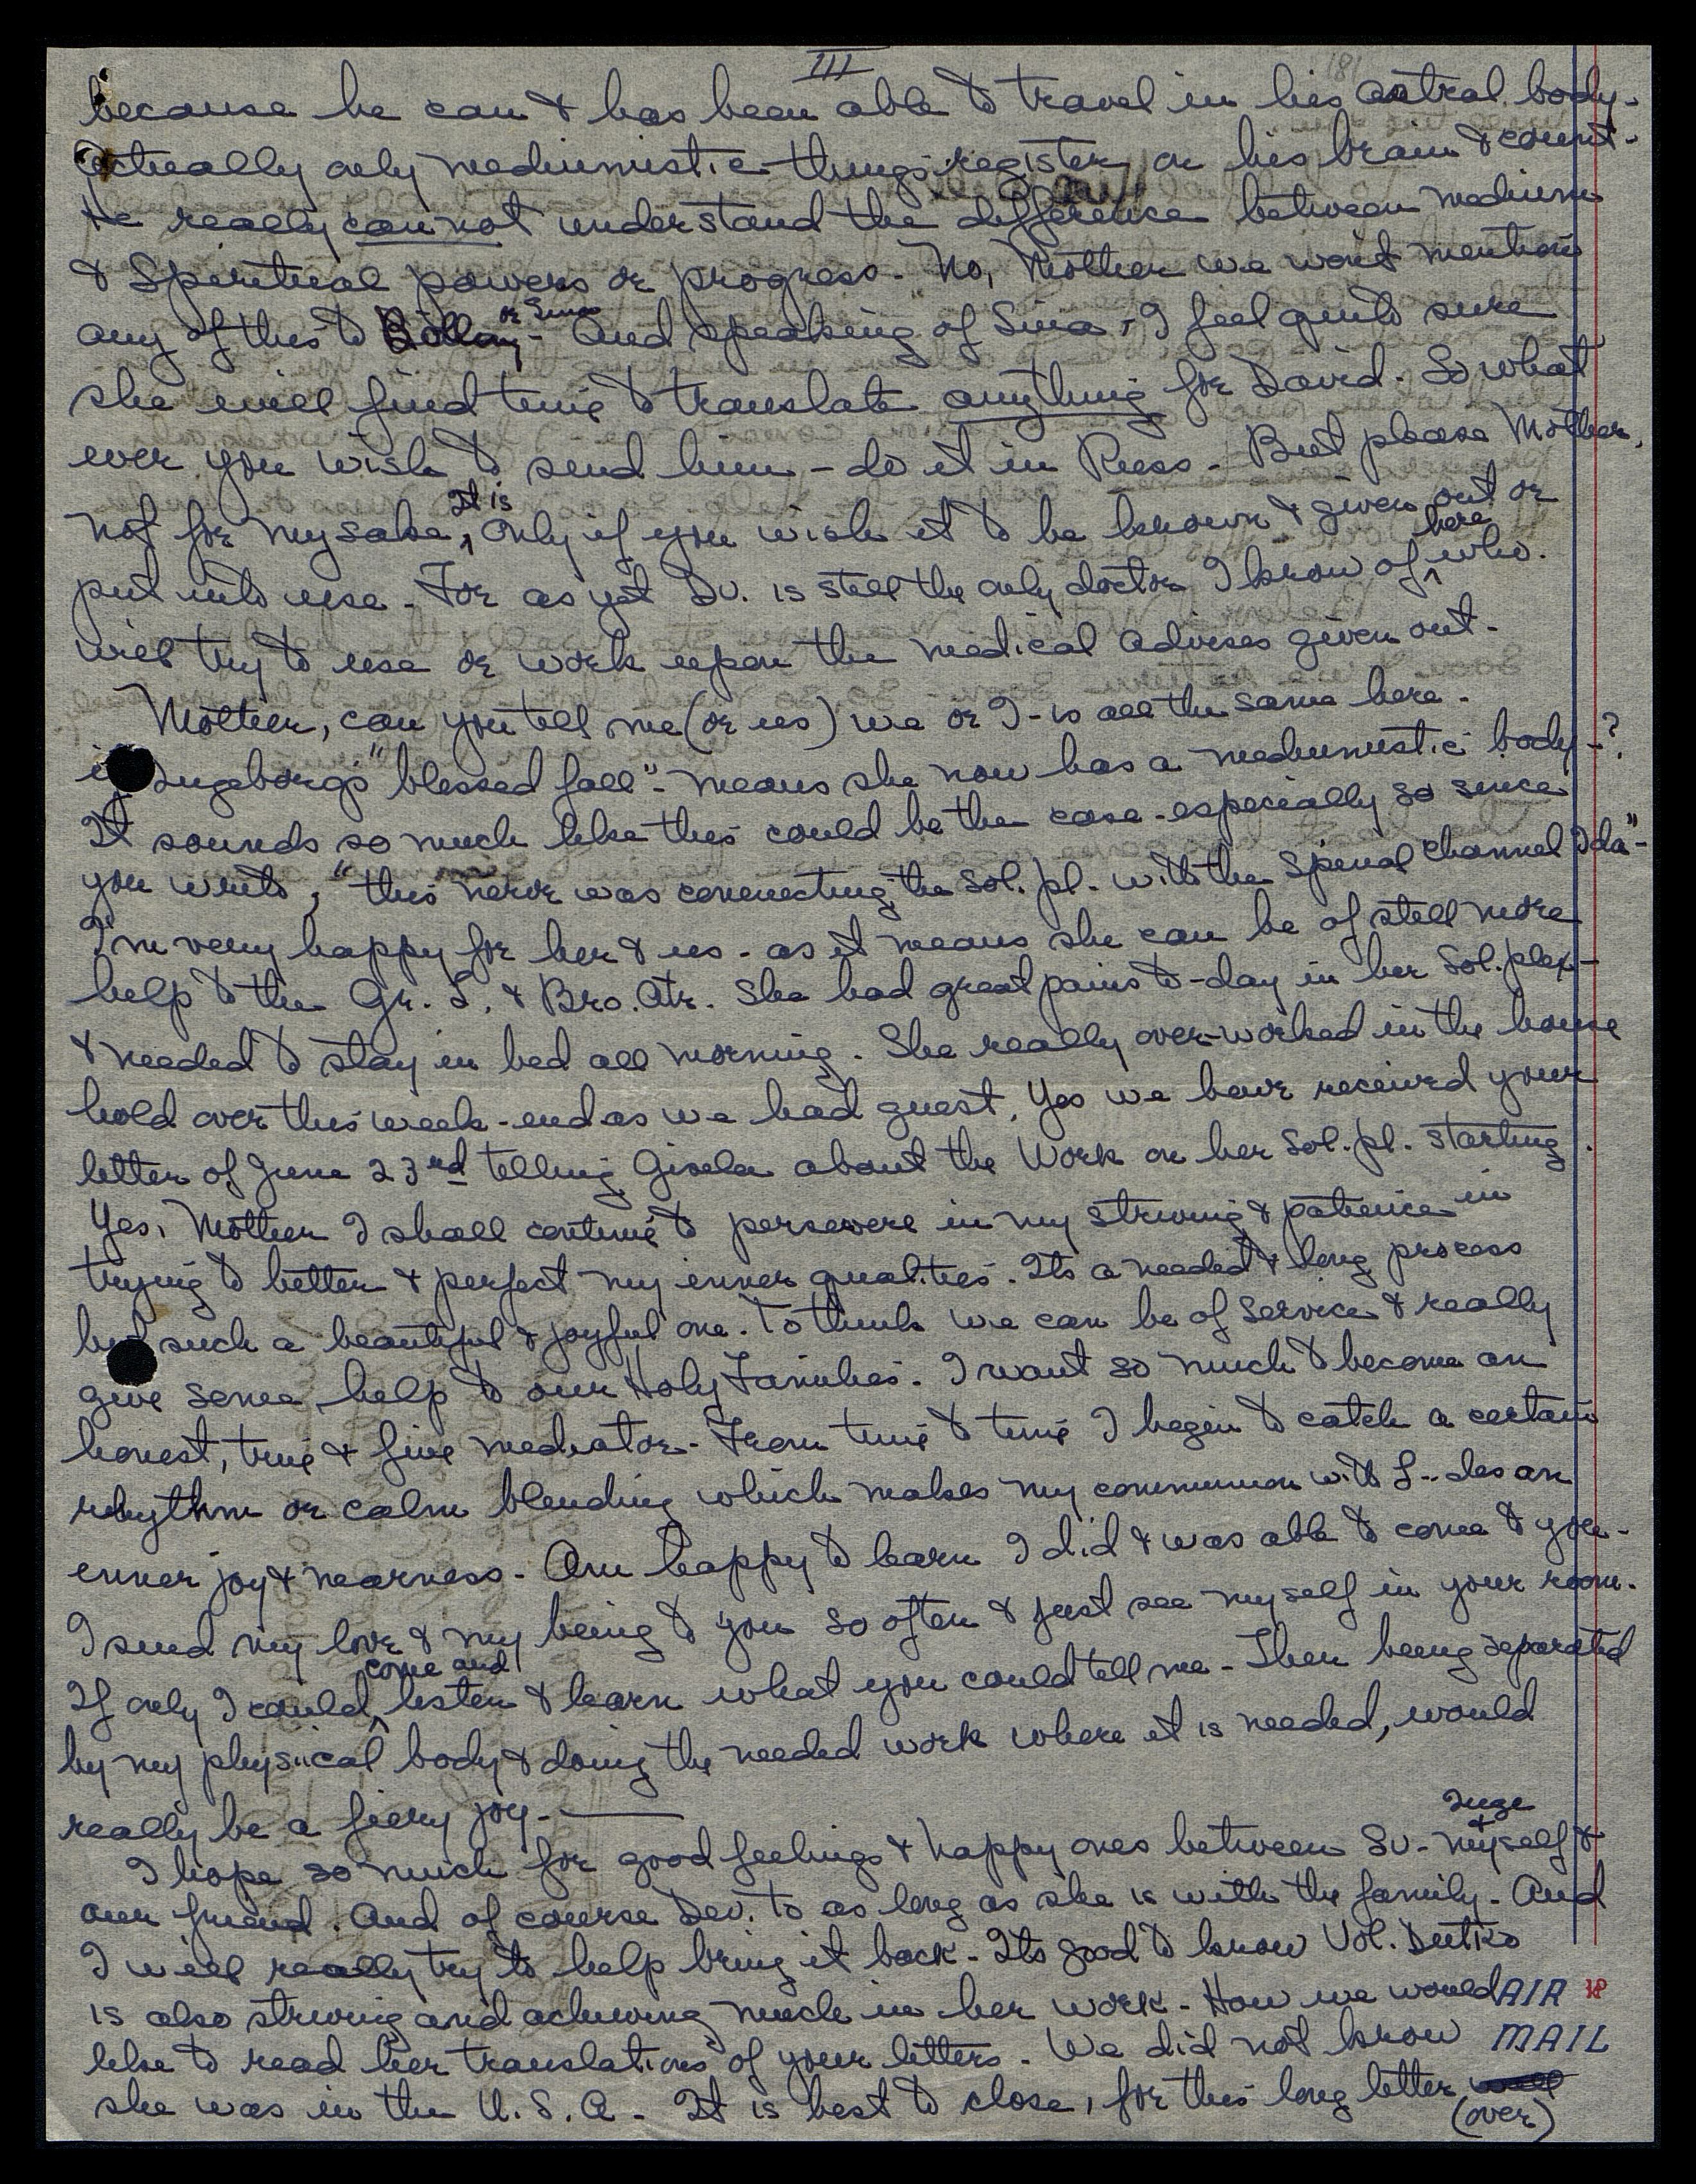 III
181
because he can & has been able to travel in his astral body.
Actually only mediumistic things register on his brain & count.
He really cannot understand the difference between medium
& Spiritual powers or progress. No, Mother we wont mention
any of this to or Sina - And speaking of Sina, I feel quite sure
she will find time to translate anything for David. So what
ever you wish to send him - do it in Russ. But please Mother,
not for my sake, It is only if you wish it to be known & given out or
put into use. For as yet Dv. is still the only doctor I know of here who.
will try to use or work upon the medical advises given out.
Mother, can you tell me (or us) we or I - is all the same here.
if Ingeborg's "blessed fall" - means she now has a mediumistic body -?
It sounds so much like this could be the case - especially so since
you write, "this nerve was connecting the Sol. pl. with the Spinal Channel Ida" -
I'm very happy for her & us - as it means she can be of still more
help to the Gr. L. & Bro. Atr. She had great pains to-day in her Sol. plex -
& needed to stay in bed all morning. She really over-worked in the house
hold over this week-end as we had guest. Yes we have received your
letter of June 23rd telling Gisela about the Work on her Sol. pl. starting.
Yes, Mother I shall continue to persevere in my striving & patience in
trying to better & perfect my inner qualities. Its a needed & long process
but such a beautiful & joyful one. To think we can be of Service & really
give some help to our Holy Families. I want so much to become an
honest, true & fine mediator. From time to time I begin to catch a certain
rhythm or calm blending which makes my communion with L.. des an
inner joy & nearness. Am happy to learn I did & was able to come to you.
I send my love & my being to you so often & just see myself in your room.
If only I could come and listen & learn what you could tell me - Then being separated
by my physical body & doing the needed work where it is needed, would
really be a fiery joy. —
I hope so much for good feelings & happy ones between Sv. - Inge + myself &
our friend. And of course Dev. to as long as she is with the family. And
I will really try to help bring it back. Its good to know Vol. Dutko
is also striving and achieving much in her work. How we would
like to read her translations of your letters. We did not know
she was in the U.S.A. - It is best to close, for this long letter
(over)
AIR
MAIL